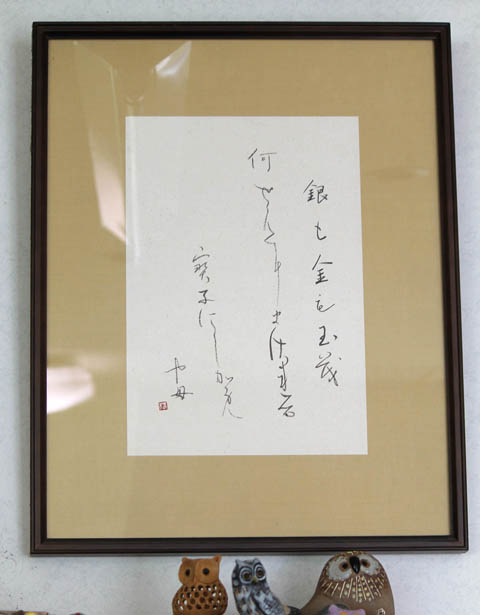 銀も金も玉茂
何せんにまされる
寶子にしかめ
や母